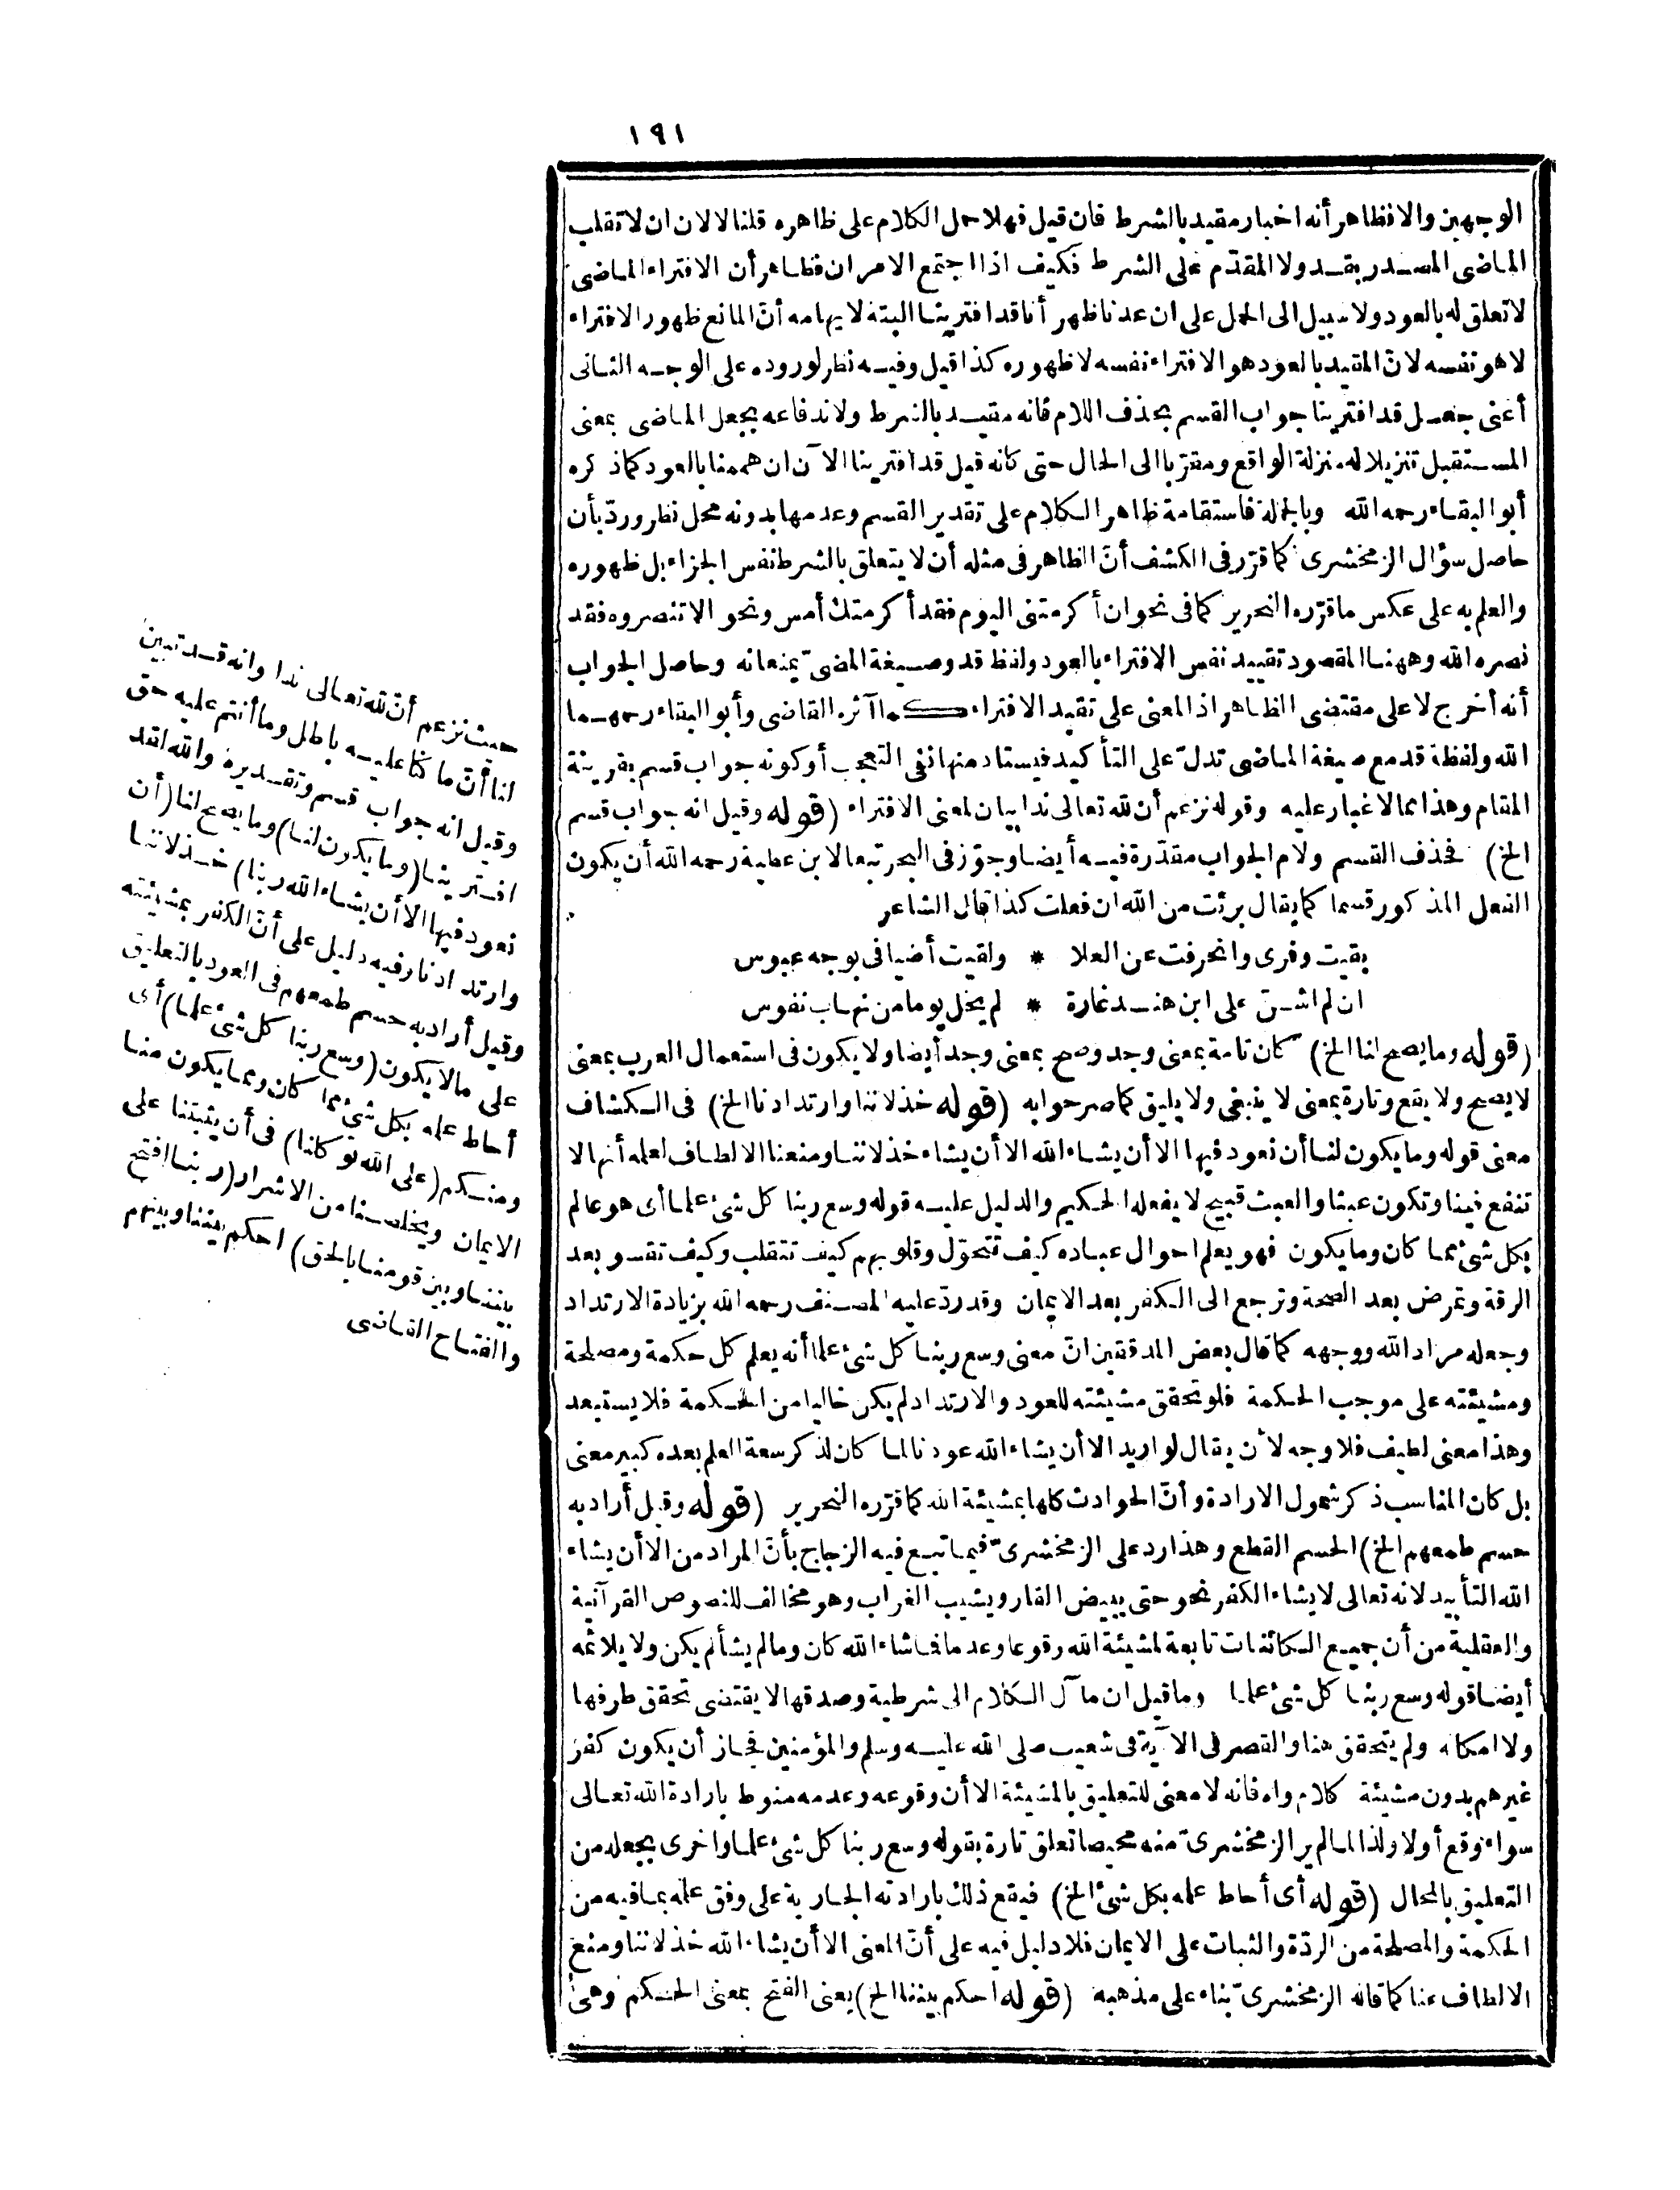 ١٩١
الوجهين والا فظاهر أنه اخبار مقيد بالشرط فان قيل فهلا حمل الكلام على ظاهره قلنا لا لان ان لا تقلب
الماضى المصدر بقد ولا المقدّم على الشرط فكيف اذا اجتمع الامران فظاهر أن الافتراء الماضى
لا تعلق له بالعود ولا سبيل الى الحمل على ان عدنا ظهر أنا قد افترينا البتة لايهامه أنّ المانع ظهور الافتراء
لا هو نفسه لانّ المقيد بالعود هو الافتراء نفسه لا ظهوره كذا قيل وفيه نظر لوروده على الوجه الثانى
أعنى جعل قد افترينا جواب القسم بحذف اللام فانه مقيد بالشرط ولاندفاعه بجعل الماضى بمعنى
المستقبل تنزيلا له منزلة الواقع ومقرّبا الى الحال حتى كانه قيل قد افترينا الآن ان هممنا بالعود كما ذكره
أبو البقاء رحمه الله وبالجملة فاستقامة ظاهر الكلام على تقدير القسم وعدمها بدونه محل نظر وردّ بأن
حاصل سؤال الزمخشرى كما قرّر فى الكشف أنّ الظاهر فى مثله أن لا يتعلق بالشرط نفس الجزاء بل ظهوره
والعلم به على عكس ما قرّره النحرير كما فى نحو ان أكرمتنى اليوم فقد أكرمتك أمس ونحو الا تنصروه فقد
نصره الله وههنا المقصود تقييد نفس الافتراء بالعود ولفظ قد وصيغة المضىّ يمنعانه وحاصل الجواب
أنه أخرج لا على مقتضى الظاهر اذ المعنى على تقيد الافتراء كما آثره القاضى وأبو البقاء رحمهما
الله ولفظة قد مع صيغة الماضى تدلّ على التأكيد فيستاد منها ففى التعجب أو كونه جواب قسم بقرينة
المقام وهذا مما لا غبار عليه وقوله نزعم أن لله تعالى ندا بيان لمعنى الافتراء (قوله وقيل انه جواب قسم
الخ) فحذف القسم ولام الجواب مقدّرة فيه أيضا وجوّز فى البحر تبعا لابن عطية رحمه الله أن يكون
الفعل المذكور قسما كما يقال برئت من الله ان فعلت كذا قال الشاعر
بقيت وفرى وانحرفت عن العلا * ولقيت أضيافى بوجه عبوس
ان لم اشن على ابن هند غارة * لم يخل يوما من نهاب نفوس
(قوله وما يصح لنا الخ) كان تامة بمعنى وجد وصح بمعنى وجد أيضا ولا يكون فى استعمال العرب بمعنى
لا يصح ولا يقع وتارة بمعنى لا ينبغى ولا يليق كما صرحوا به (قوله خذلاننا وارتدادنا الخ) فى الكشاف
معنى قوله وما يكون لنا أن نعود فيها الا أن يشاء الله الا أن يشاء خذلاننا ومنعنا الالطاف لعلمه أنها لا
تنفع فينا وتكون عبثا والعبث قبيح لا يفعله الحكيم والدليل عليه قوله وسع ربنا كل شئ علما أى هو عالم
بكل شئ مما كان وما يكون فهو يعلم احوال عباده كيف تتحوّل وقلوبهم كيف تتقلب وكيف تقسو بعد
الرقة وتمرض بعد الصحة وترجع الى الكفر بعد الايمان وقد ردّ عليه المصنف رحمه الله بزيادة الارتداد
وجعله مراد الله ووجهه كما قال بعض المدققين انّ معنى وسع ربنا كل شئ علما أنه يعلم كل حكمة ومصلحة
ومشيئته على موجب الحكمة فلو تحقق مشيئته للعود والارتداد لم يكن خاليا من الحكمة فلا يستبعد
وهذا معنى لطيف فلا وجه لأن يقال لو اريد الا أن يشاء الله عودنا لما كان لذكر سعة العلم بعده كبير معنى
بل كان المناسب ذكر شمول الارادة وأنّ الحوادث كلها بمشيئة الله كما قرّره النحرير (قوله وقيل أراد به
حسم طمعهم الخ) الحسم القطع وهذا رد على الزمخشرىّ فيما تبع فيه الزجاج بأنّ المراد من الا أن يشاء
الله التأبيد لانه تعالى لا يشاء الكفر نحو حتى يبيض القار ويشيب الغراب وهو مخالف للنصوص القرآنية
والعقلية من أن جميع الكائنات تابعة لمشيئة الله وقوعا وعدما فما شاء الله كان وما لم يشأ لم يكن ولا يلائمه
أيضا قوله وسع ربنا كل شئ علما وما قيل ان مآل الكلام الى شرطية وصدقها لا يقتضى تحقق طرفها
ولا امكانه ولم يتحقق هنا والقصر فى الآية فى شعيب صلى الله عليه وسلم والمؤمنين فجاز أن يكون كفر
غيرهم بدون مشيئة كلام واه فانه لا معنى للتعليق بالمشيئة الا أن وقوعه وعدمه منوط بارادة الله تعالى
سواء وقع أولا ولذا لما لم ير الزمخشرىّ منه محيصا تعلق تارة بقوله وسع ربنا كل شئ علما واخرى بجعله من
التعليق بالمحال (قوله أى أحاط علمه بكل شئ الخ) فيقع ذلك بارادته الجارية على وفق علمه بما فيه من
الحكمة والمصلحة من الردّة والثبات على الايمان فلا دليل فيه على أنّ المعنى الا أن يشاء الله خذلاننا ومنع
الالطاف عنا كما قاله الزمخشرىّ بناء على مذهبه (قوله احكم بيننا الخ) يعنى الفتح بمعنى الحكم وهى
حيث نزعم أنّ لله تعالى ندا وانه قد تبين
لنا أنّ ما كنا عليه باطل وما أنتم عليه حق
وقيل انه جواب قسم وتقديره والله لقد
افترينا (وما يكون لنا) وما يصح لنا (أن
نعود فيها الا أن يشاء الله ربنا) خذلاننا
وارتدادنا وفيه دليل على أنّ الكفر بمشيئته
وقيل أراد به حسم طمعهم فى العود بالتعليق
على ما لا يكون (وسع ربنا كل شئ علما) أى
أحاط علمه بكل شئ مما كان وما يكون منا
ومنكم (على الله توكلنا) فى أن يثبتنا على
الايمان ويخلصنا من الاشرار (ربنا افتح
بيننا وبين قومنا بالحق) احكم بيننا وبينهم
والفتاح القاضى